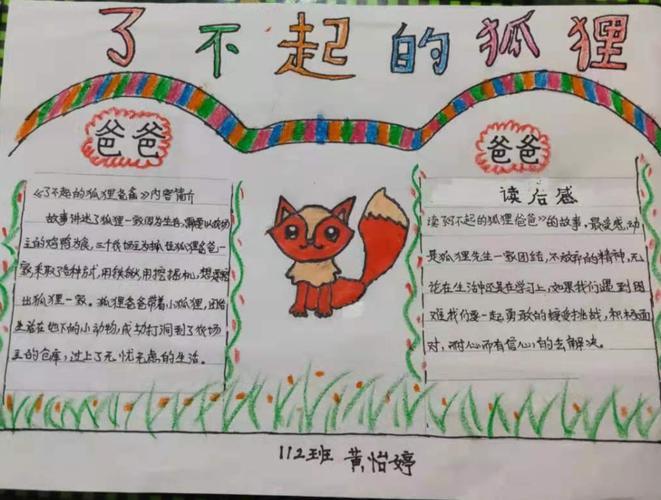 了不起的狐狸
爸爸
《了不起的狐狸爸爸》内容简介
故事讲述了狐狸一家因为生存,需要以农场
主的鸡鸭为食,三个农场主为抓住狐狸爸爸一
家,采取了各种方式,用铁锹,用挖掘机,想要挖
出狐狸一家。狐狸爸爸带着小狐狸,团结
生活在地下的小动物,成功打洞到了农场
主的仓库,过上了无忧无虑的生活。
爸爸
读后感
读了《了不起的狐狸爸爸》的故事,最受感动
是狐狸先生一家团结,不放弃的精神,无
论在生活中还是在学习上,如果我们遇到困
难我们要一起勇敢的接受挑战,积极面
对,耐心而有信心的去解决。
112班 黄怡婷